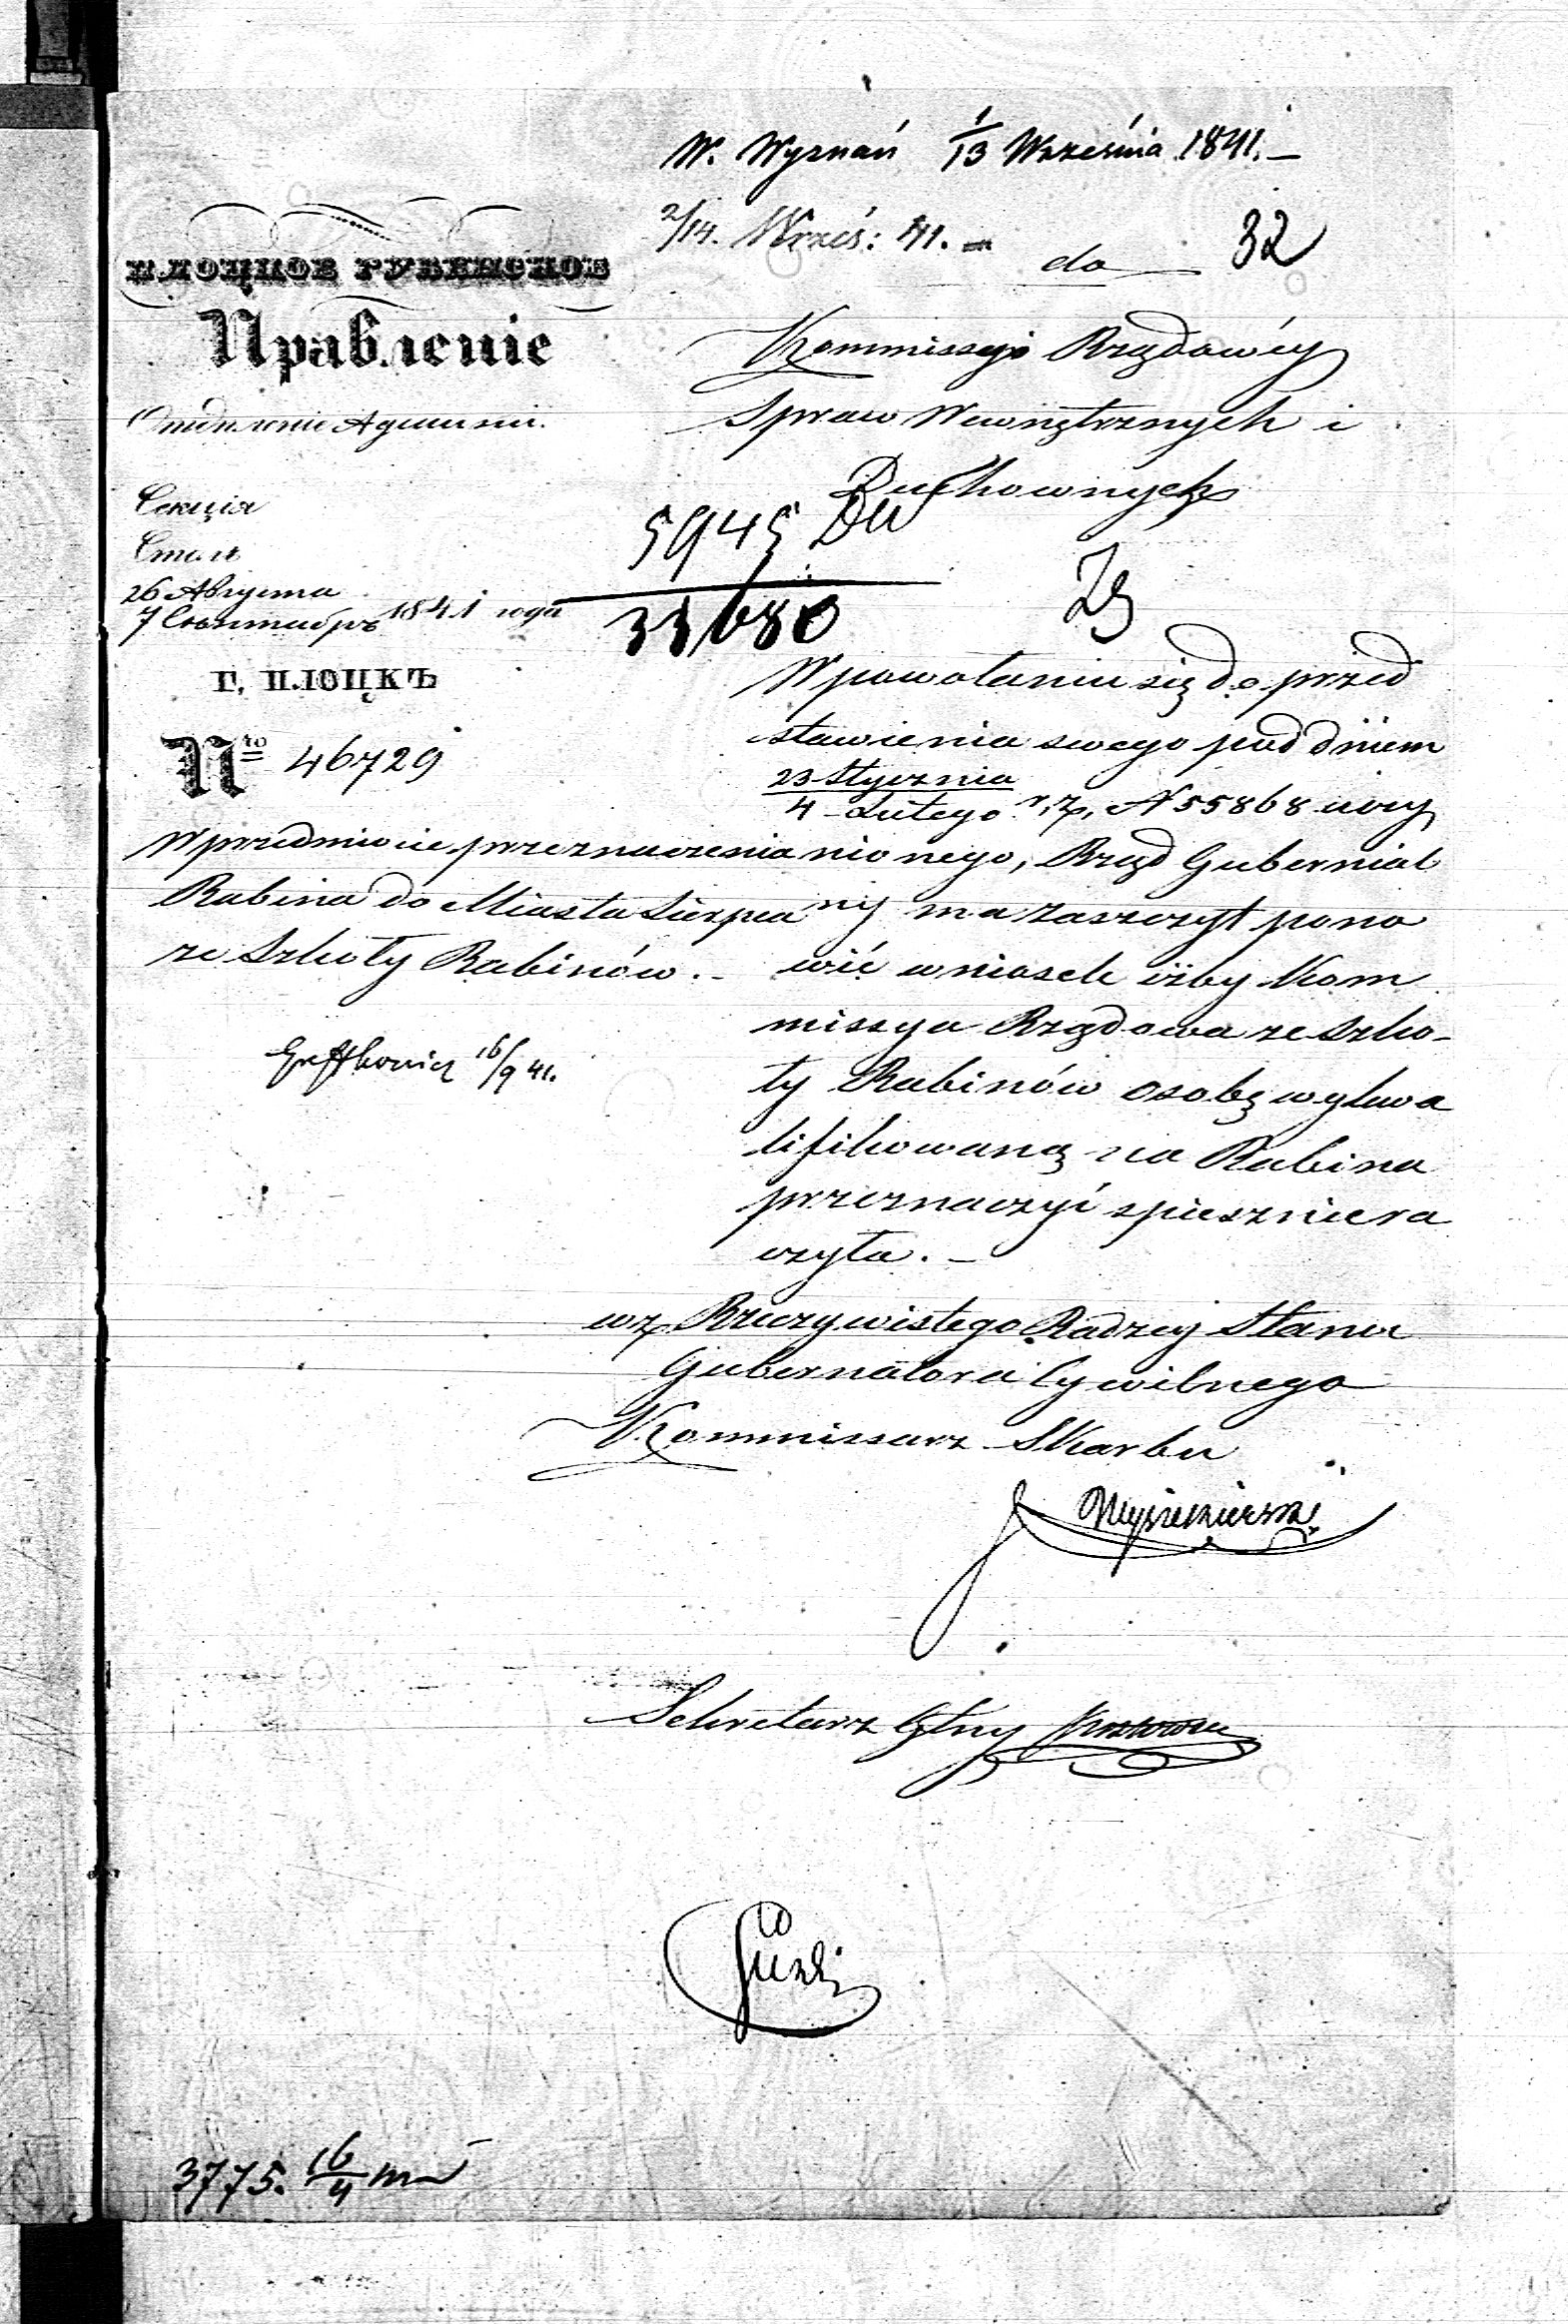 W. Wyznań 1/13 Września 1841. –
2/14. Wrześ: 41. –
do
32
ПЛОЦКОЕ ГУБЕРНСКОЕ
Правленіе
Отдѣленіе Админи.
Секція
Столъ
26 Августа
7 Сентября 1841 года
Г. ПЛОЦКЪ
No 46729
Kommissyi Rządowéy
Spraw Wewnętrznych i
Duchownych
5945
33680
W przedmiocie przeznaczenia
Rabina do Miasta Sierpca
ze Szkoły Rabinów. –
16/9 41.
W powołaniu się do przed
stawienia swego pod dniem
23 Stycznia
4 Lutego r. z. N 55868 uczy
nionego, Rząd Gubernial
ny ma zaszczyt pono
wić wniosek iżby Kom
missya Rządowa ze Szko-
ły Rabinów osobę wykwa
lifikowaną na Rabina
przeznaczyć spiesznie ra
czyła. –
wz. Rzeczywistego Radzcy Stanu
Gubernatora Cywilnego
Kommissarz Skarbu
Sekretarz Głny
3775. 16/4